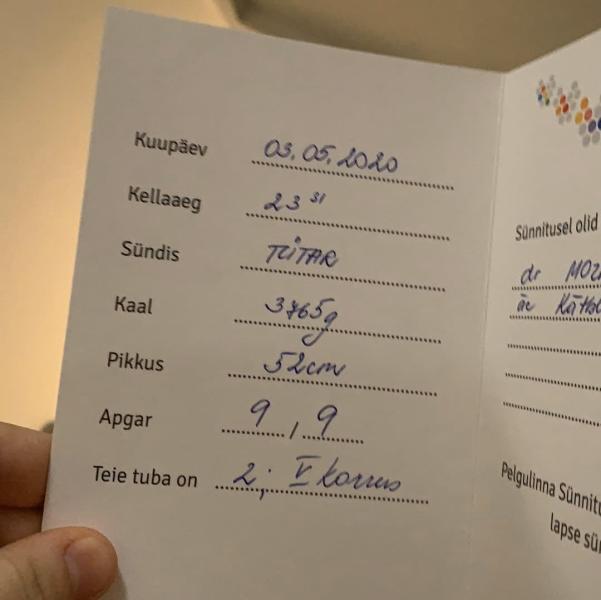 Kuupäev 03.05.2020
Kellaaeg 23 31
Sündis TÜTAR
Kaal 3765g
Pikkus 52cm
Apgar 9, 9
Teie tuba on 2; V korrus
Sünnitusel olid
dr
äe
Pelgulinna Sünnitu
lapse sü